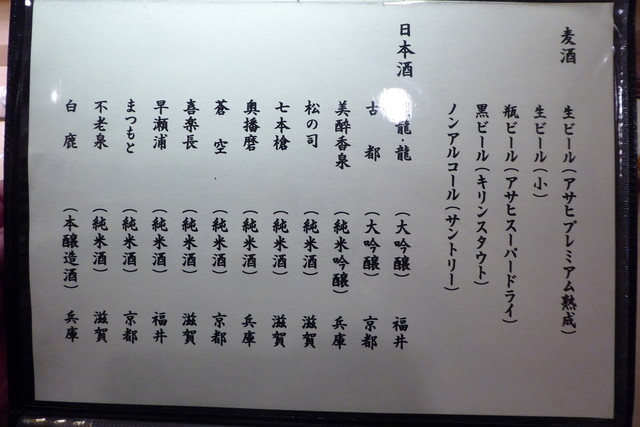 麦酒
生ビール(アサヒプレミアム熟成)
生ビール(小)
瓶ビール(アサヒスーパードライ)
黒ビール(キリンスタウト)
ノンアルコール(サントリー)
日本酒
龍・龍 (大吟醸) 福井
古都 (大吟醸) 京都
美酔香泉 (純米吟醸) 兵庫
松の司 (純米酒) 滋賀
七本槍 (純米酒) 滋賀
奥播磨 (純米酒) 兵庫
蒼空 (純米酒) 京都
喜楽長 (純米酒) 滋賀
早瀬浦 (純米酒) 福井
まつもと (純米酒) 京都
不老泉 (純米酒) 滋賀
白鹿 (本醸造酒) 兵庫